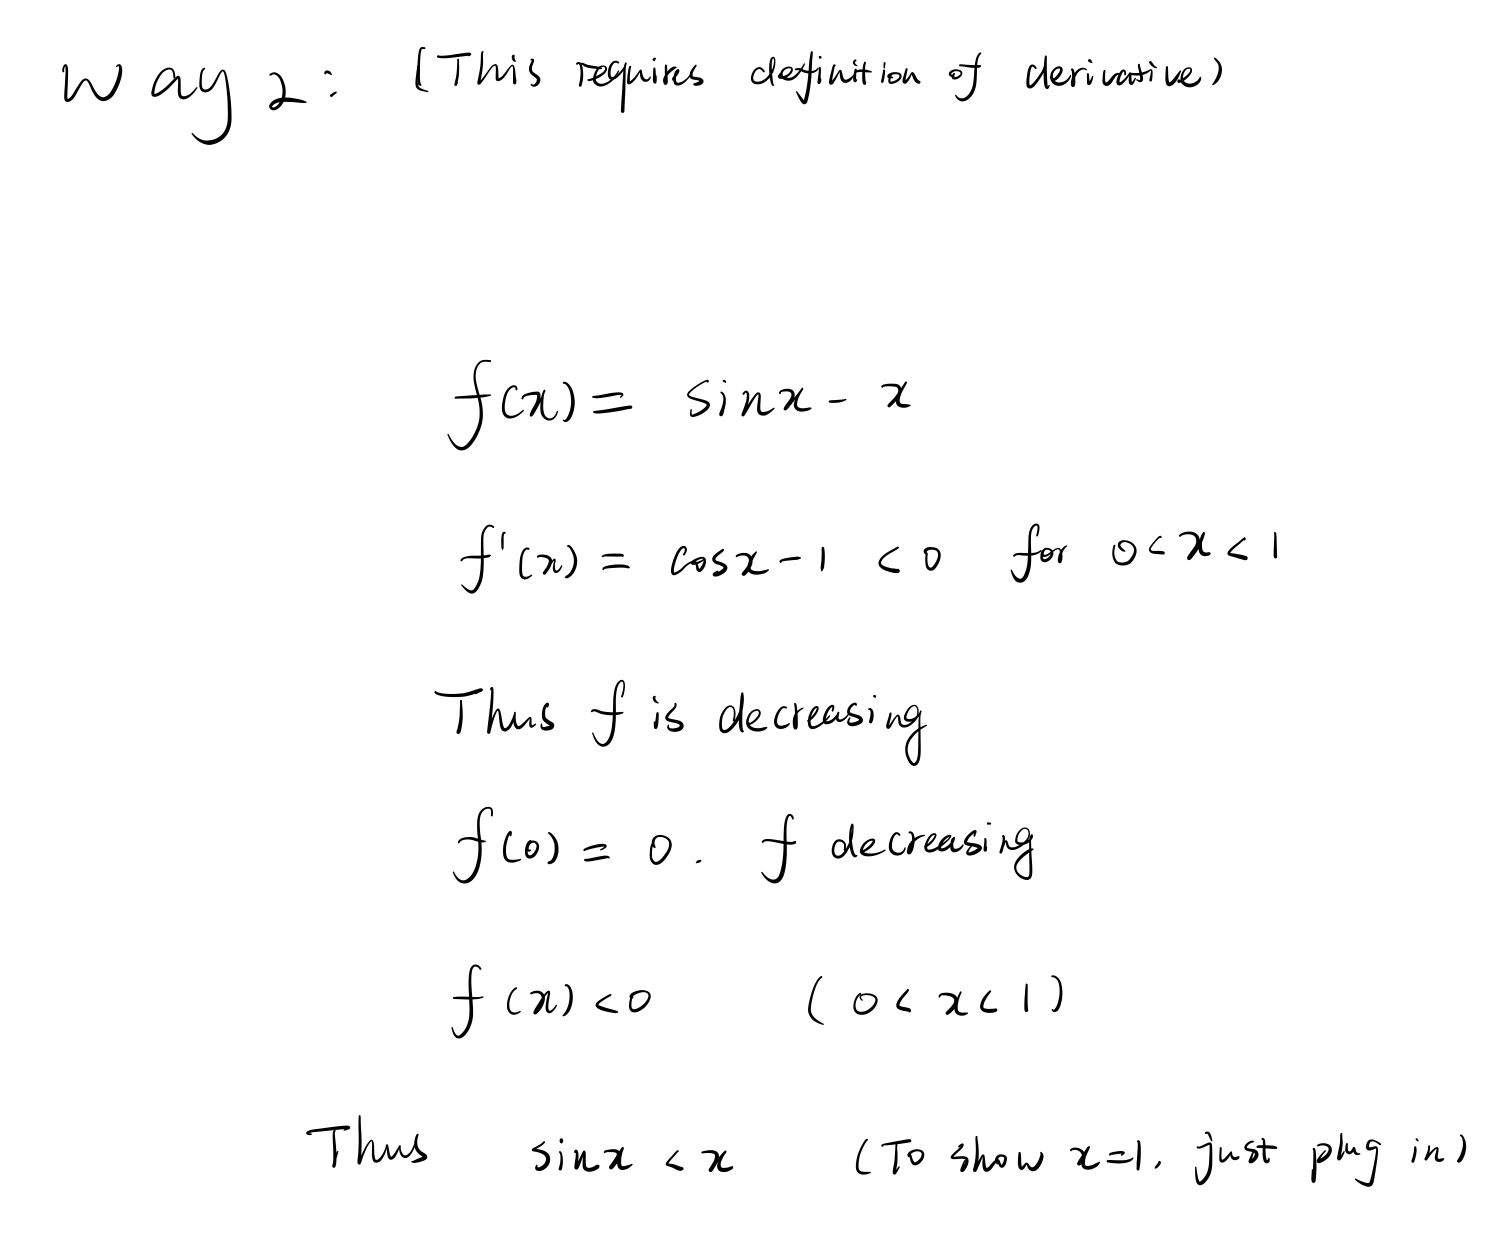 Way 2: (This requires definition of derivative)
f(x) = sinx - x
f'(x) = cosx - 1 < 0 for 0 < x < 1
Thus f is decreasing
f(0) = 0. f decreasing
f(x) < 0 (0 < x < 1)
Thus sinx < x (To show x=1, just plug in)